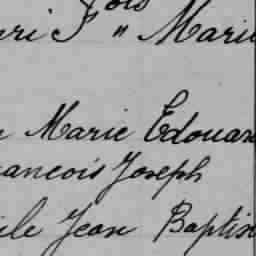 ois
nri F " Marie
Marie Edouar
rancois Joseph
ile Jean Baptis